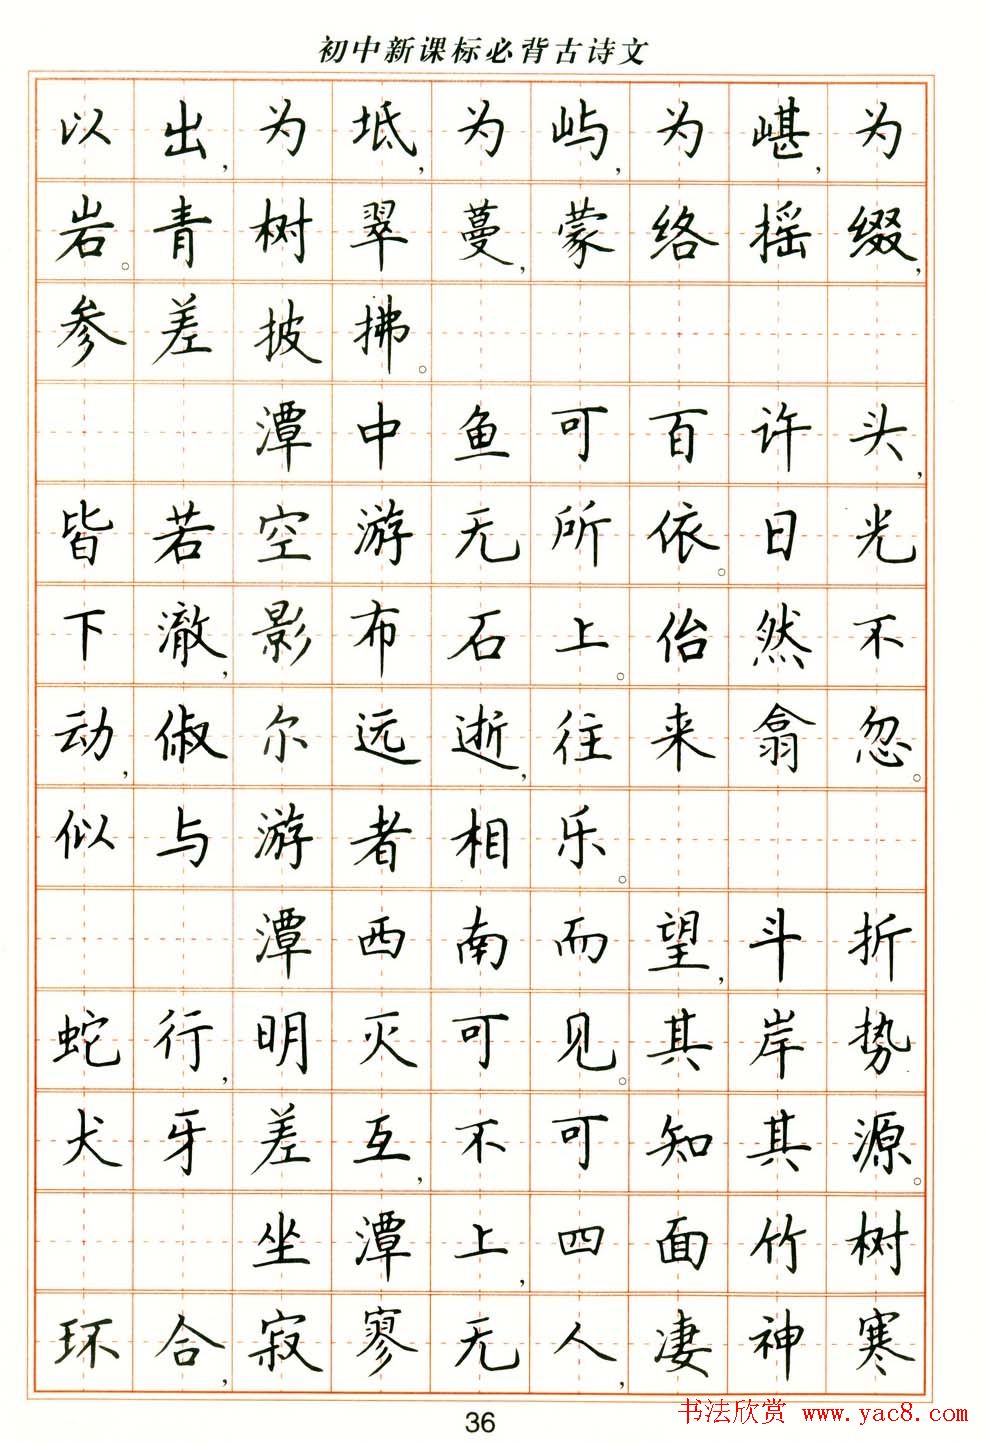 初中新课标必背古诗文
以出,为坻,为屿,为嵁,为
岩。青树翠蔓,蒙络摇缀,
参差披拂。
潭中鱼可百许头,
皆若空游无所依。日光
下澈,影布石上。佁然不
动,俶尔远逝,往来翕忽。
似与游者相乐。
潭西南而望,斗折
蛇行,明灭可见。其岸势
犬牙差互,不可知其源。
坐潭上,四面竹树
环合,寂寥无人,凄神寒
36
书法欣赏 www.yac8.com